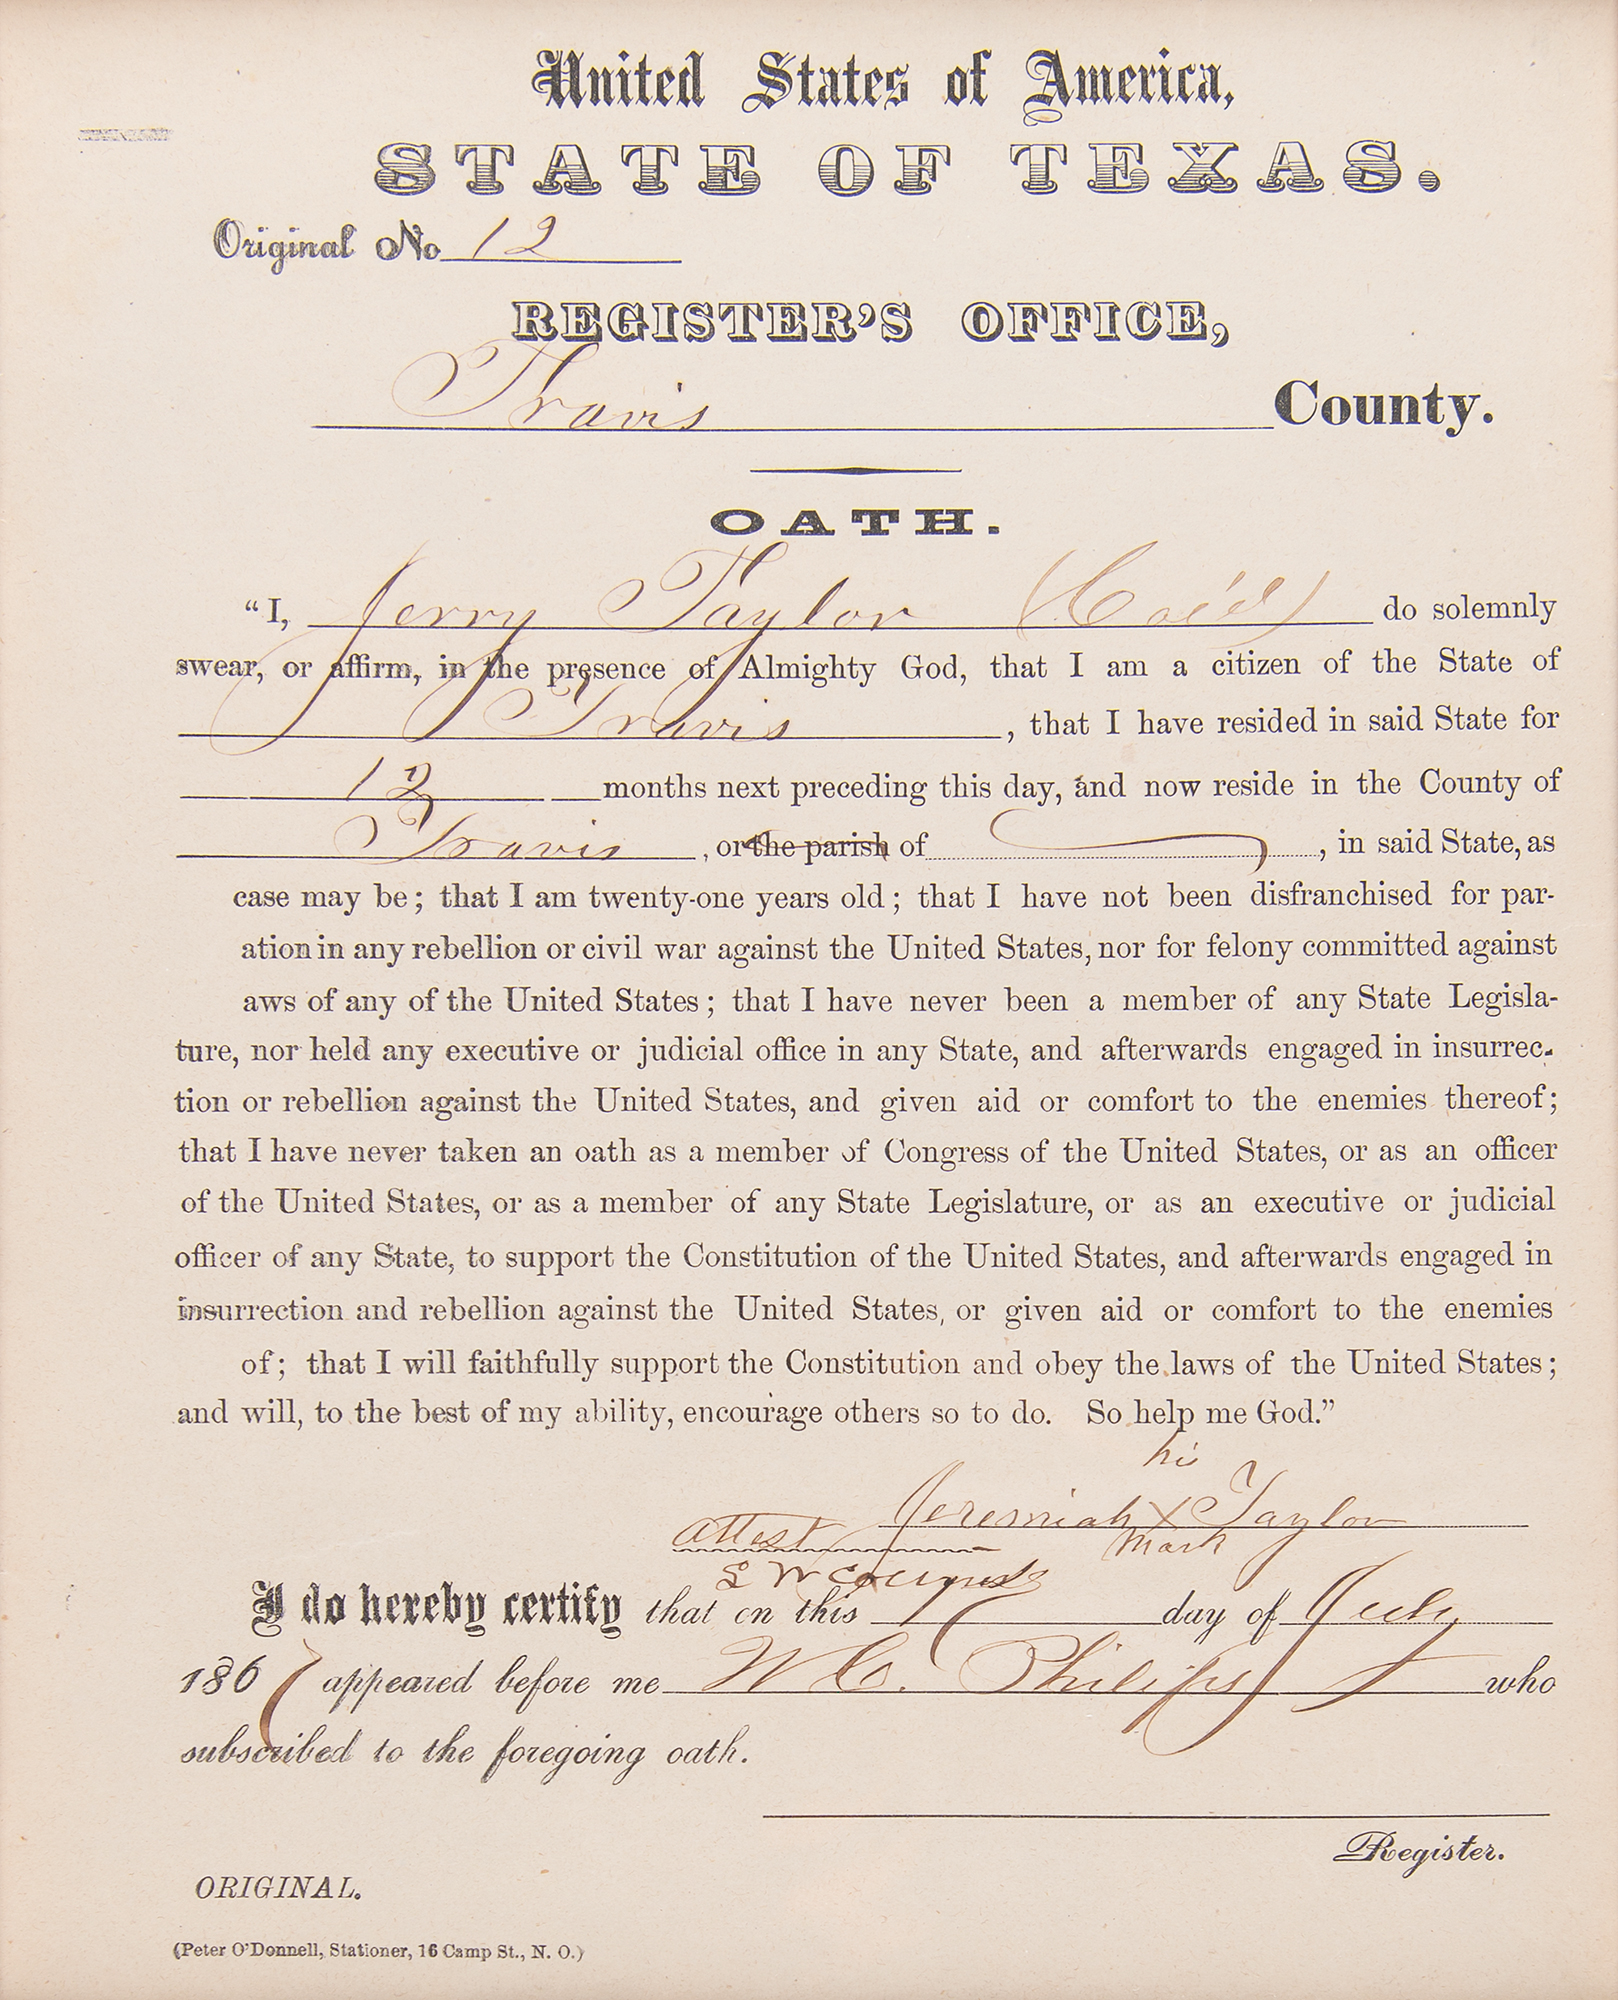 United States of America,
STATE OF TEXAS.
Original No 12
REGISTER'S OFFICE,
Travis County.
OATH.
"I, Jerry Taylor (Col'd) do solemnly
swear, or affirm, in the presence of Almighty God, that I am a citizen of the State of
Travis, that I have resided in said State for
12 months next preceding this day, and now reside in the County of
Travis, or the parish of , in said State, as
case may be; that I am twenty-one years old; that I have not been disfranchised for par-
ation in any rebellion or civil war against the United States, nor for felony committed against
aws of any of the United States; that I have never been a member of any State Legisla-
ture, nor held any executive or judicial office in any State, and afterwards engaged in insurrec-
tion or rebellion against the United States, and given aid or comfort to the enemies thereof;
that I have never taken an oath as a member of Congress of the United States, or as an officer
of the United States, or as a member of any State Legislature, or as an executive or judicial
officer of any State, to support the Constitution of the United States, and afterwards engaged in
insurrection and rebellion against the United States, or given aid or comfort to the enemies
of; that I will faithfully support the Constitution and obey the laws of the United States;
and will, to the best of my ability, encourage others so to do. So help me God."
his
Jeremiah X Taylor
Attest mark
I do hereby certify that on this day of July
1867 appeared before me W C. Philips who
subscribed to the foregoing oath.
Register.
ORIGINAL.
(Peter O'Donnell, Stationer, 16 Camp St., N. O.)